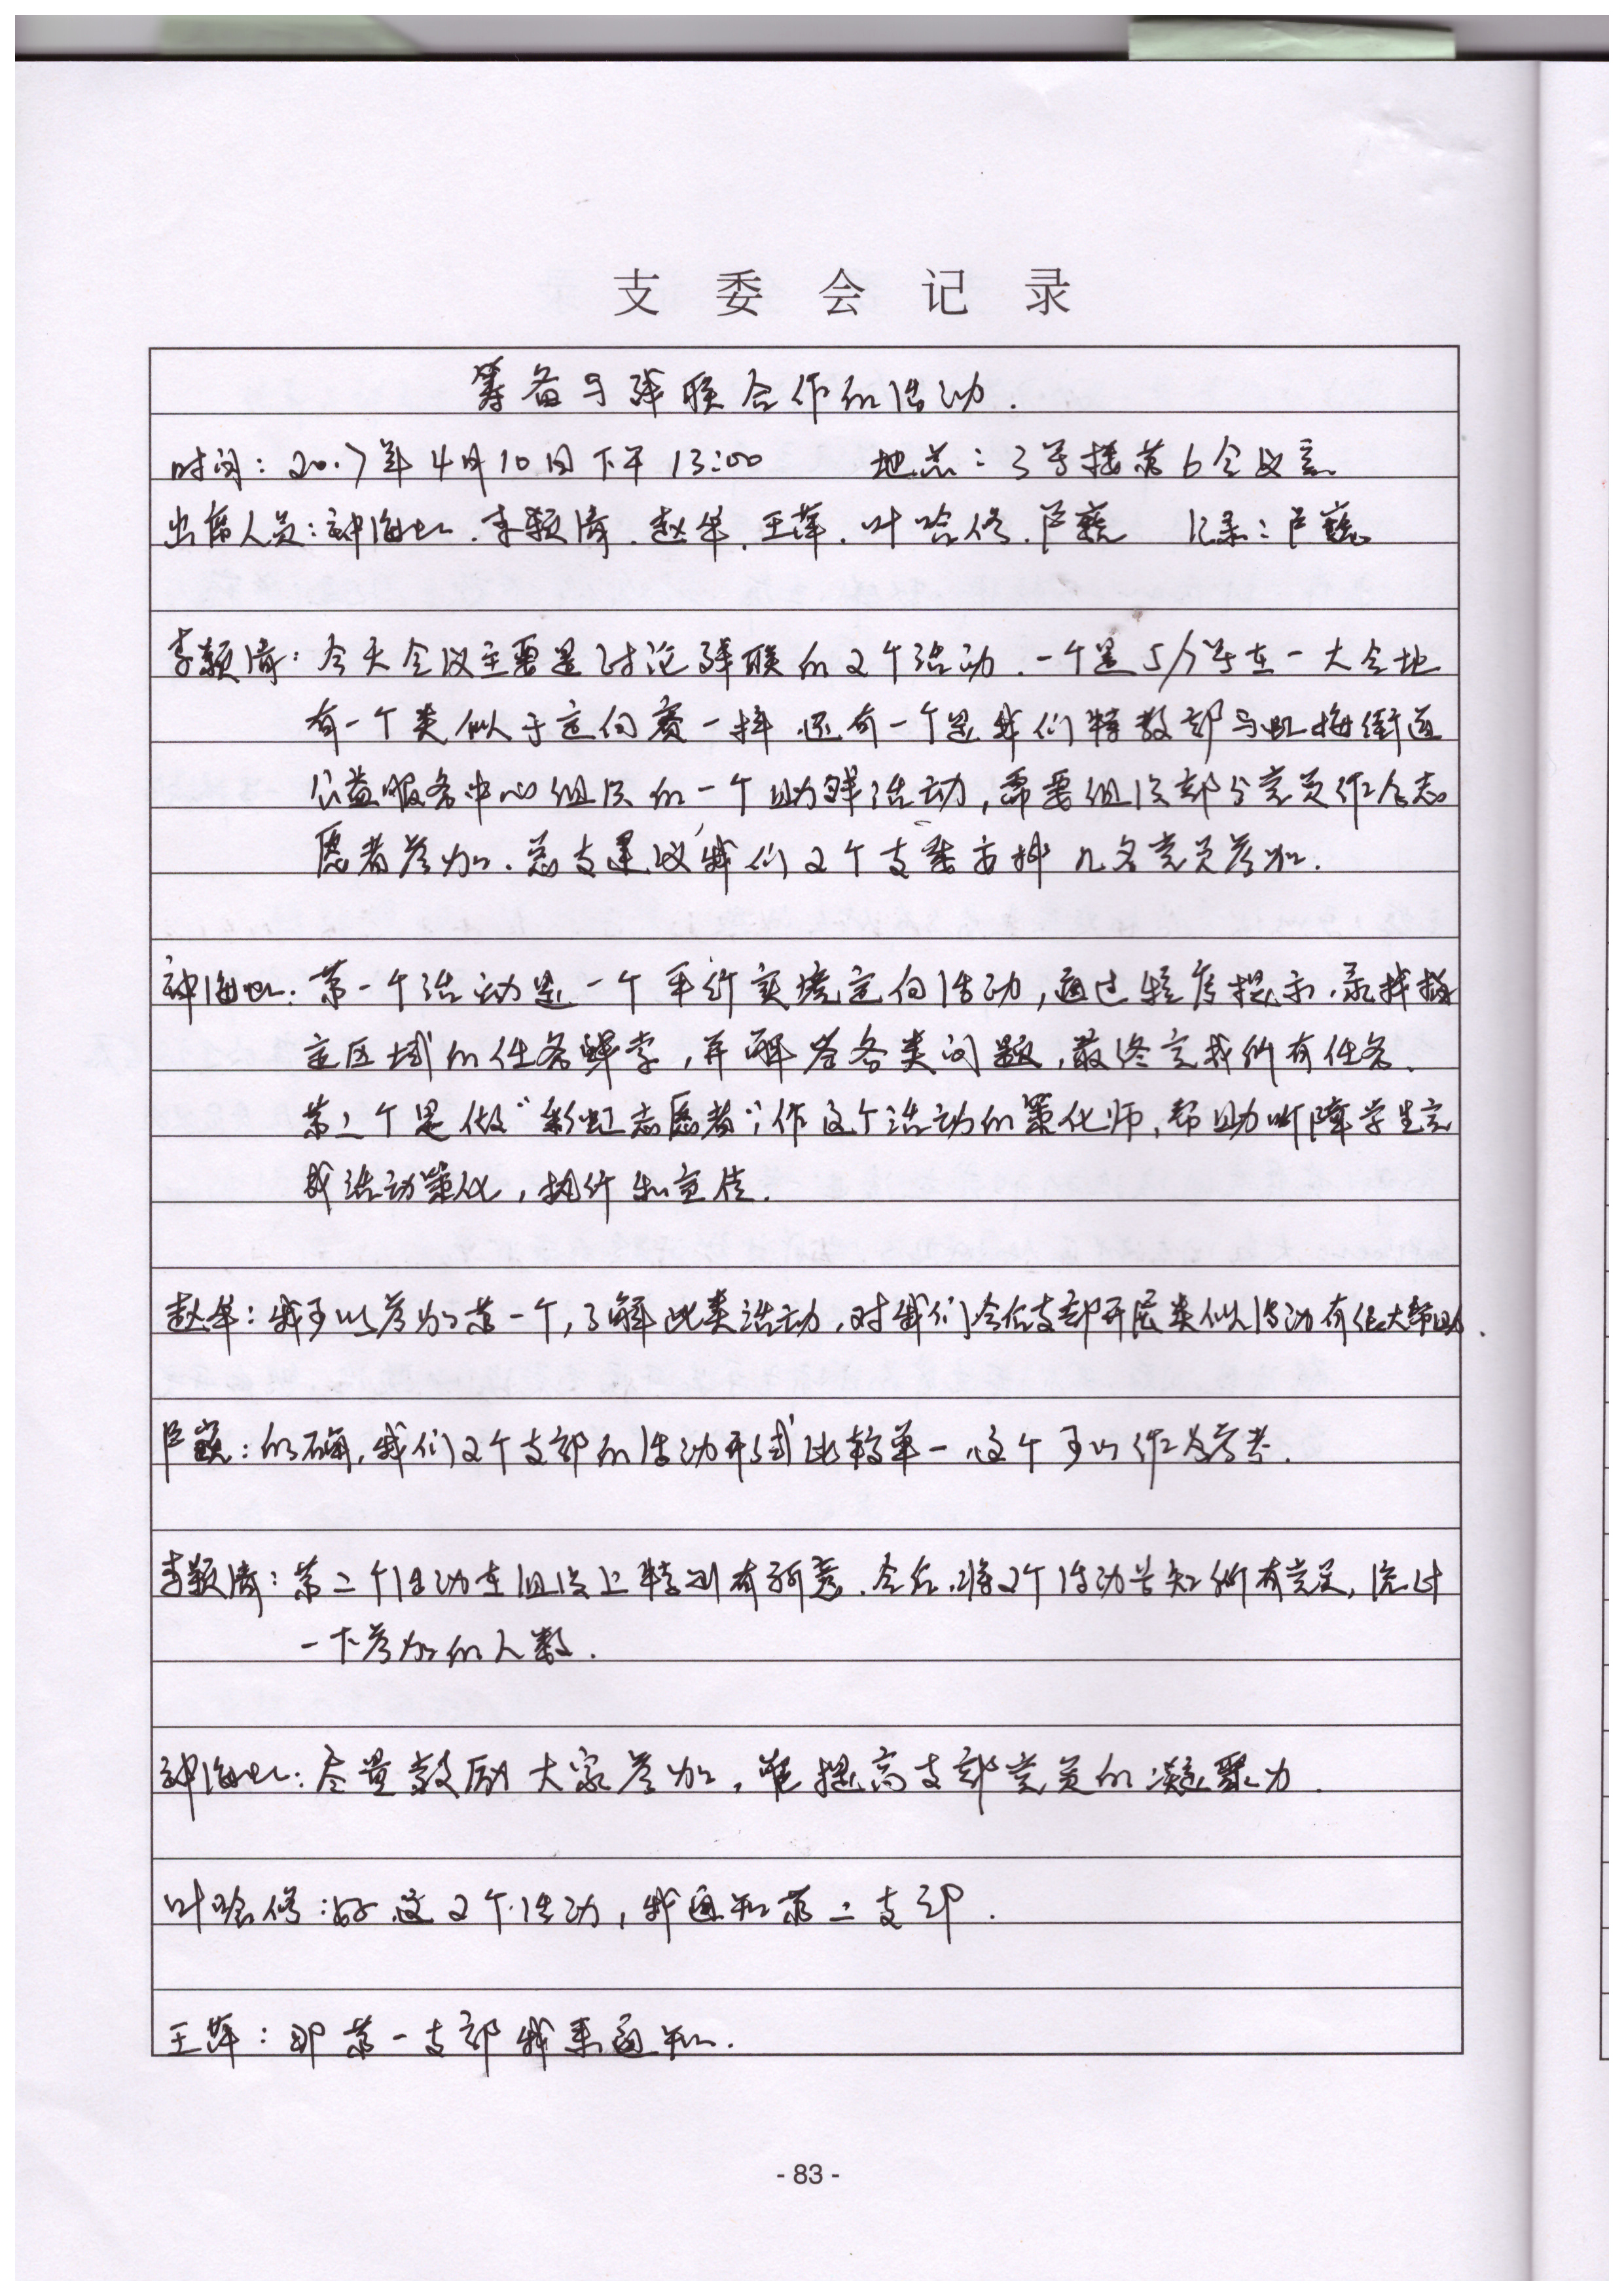 支委会记录
筹备与残联合作的活动.
时间: 2017年4月10日下午13:00 地点: 3号楼第6会议室
出席人员: 钟海虹. 李颖倩. 赵华. 王萍. 叶哈修. 卢巍 记录: 卢巍
李颖倩: 今天会议主要是讨论残联的2个活动. 一个是5/7号在一大会址
有一个类似于定向赛一样. 还有一个是我们特教部与虹梅街道
公益服务中心组织的一个助残活动, 需要组织部分党员作为志
愿者参加. 总支建议我们2个支委安排几名党员参加.
钟海虹: 第一个活动是一个平行实境定向活动, 通过 提示. 寻找指
定区域的任务 , 并解答各类问题, 最终完成所有任务.
第二个是做“彩虹志愿者”作这个活动的策化师, 帮助听障学生完
成活动策化, 执行和宣传.
赵华: 我可以参加第一个, 了解此类活动, 对我们今后支部开展类似活动有很大帮助.
卢巍: 的确, 我们2个支部的活动形式比较单一. 这个可以作为参考.
李颖倩: 第二个活动在组织上特别有新意. 会后, 将2个活动告知所有党员, 统计
一下参加的人数.
钟海虹: 尽量鼓励大家参加, 提高支部党员的凝聚力.
叶哈修: 好. 这2个活动, 我通知第二支部.
王萍: 那第一支部我来通知.
- 83 -